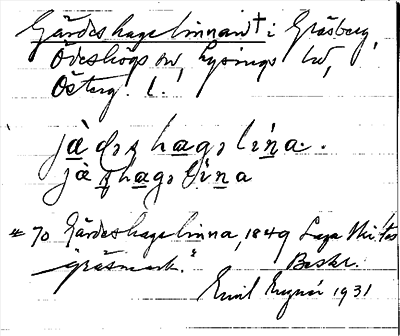 Gärdeshagelinnan† i Gräsberg,
Ödeshögs sn, Lysings hd,
Österg. l.
jàdsshagslína.
jàsshagslína
"70 Gärdeshagelinna, 1849 Laga Skiftes
gräsmark." Beskr.
Emil 1931